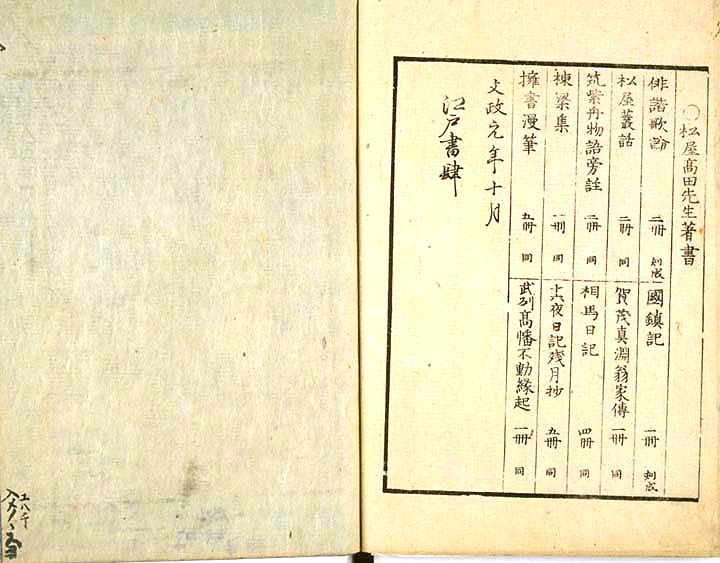 ○松屋髙田先生著書
俳諧歌論 二冊 刻成
國鎮記 一冊 刻成
松屋叢話 二冊 同
賀茂真淵翁家傳 一冊 同
筑紫舟物語旁註 二冊 同
相馬日記 四冊 同
棟梁集 一冊 同
十六夜日記残月抄 五冊 同
擁書漫筆 五冊 同
武列髙幡不動縁起 一冊 同
文政元年十月
江戸書肆